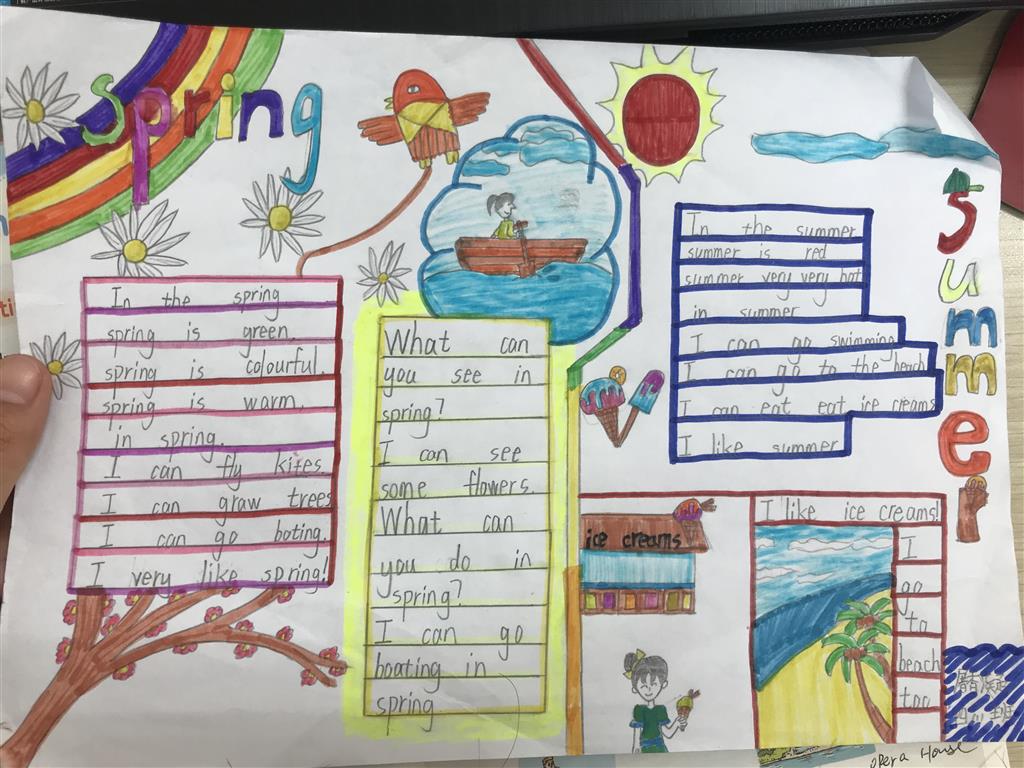 spring
In the spring
spring is green.
spring is colourful.
spring is warm.
in spring.
I can fly kites.
I can graw trees
I can go boting.
I very like spring!
What can
you see in
spring?
I can see
some flowers.
What can
you do in
spring?
I can go
boating in
spring
summer
In the summer
summer is red
summer very very hot
in summer
I can go swimming
I can go to the beach
I can eat eat ice creams
I like summer
ice creams
I like ice creams!
I
go
to
beach
too
opera House